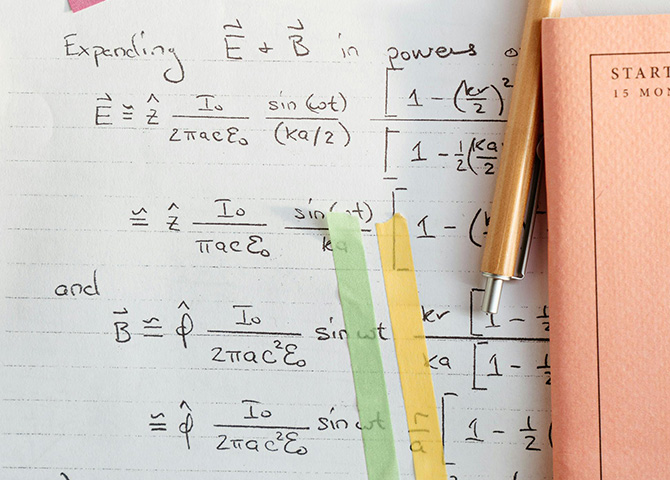 Expanding E⃗ + B⃗ in powers
E⃗ ≅ ẑ I₀/(2πacε₀) sin(ωt)/(ka/2) [1 - (kr/2)²/[1 - ½(ka/2
≅ ẑ I₀/(πacε₀) sin(ωt)/ka [1 - (
and
B⃗ ≅ φ̂ I₀/(2πac²ε₀) sin ωt kr [1 - ½/ka [1 - ½
≅ φ̂ I₀/(2πac²ε₀) sin ωt r/a [1 - ½(
START
15 MON